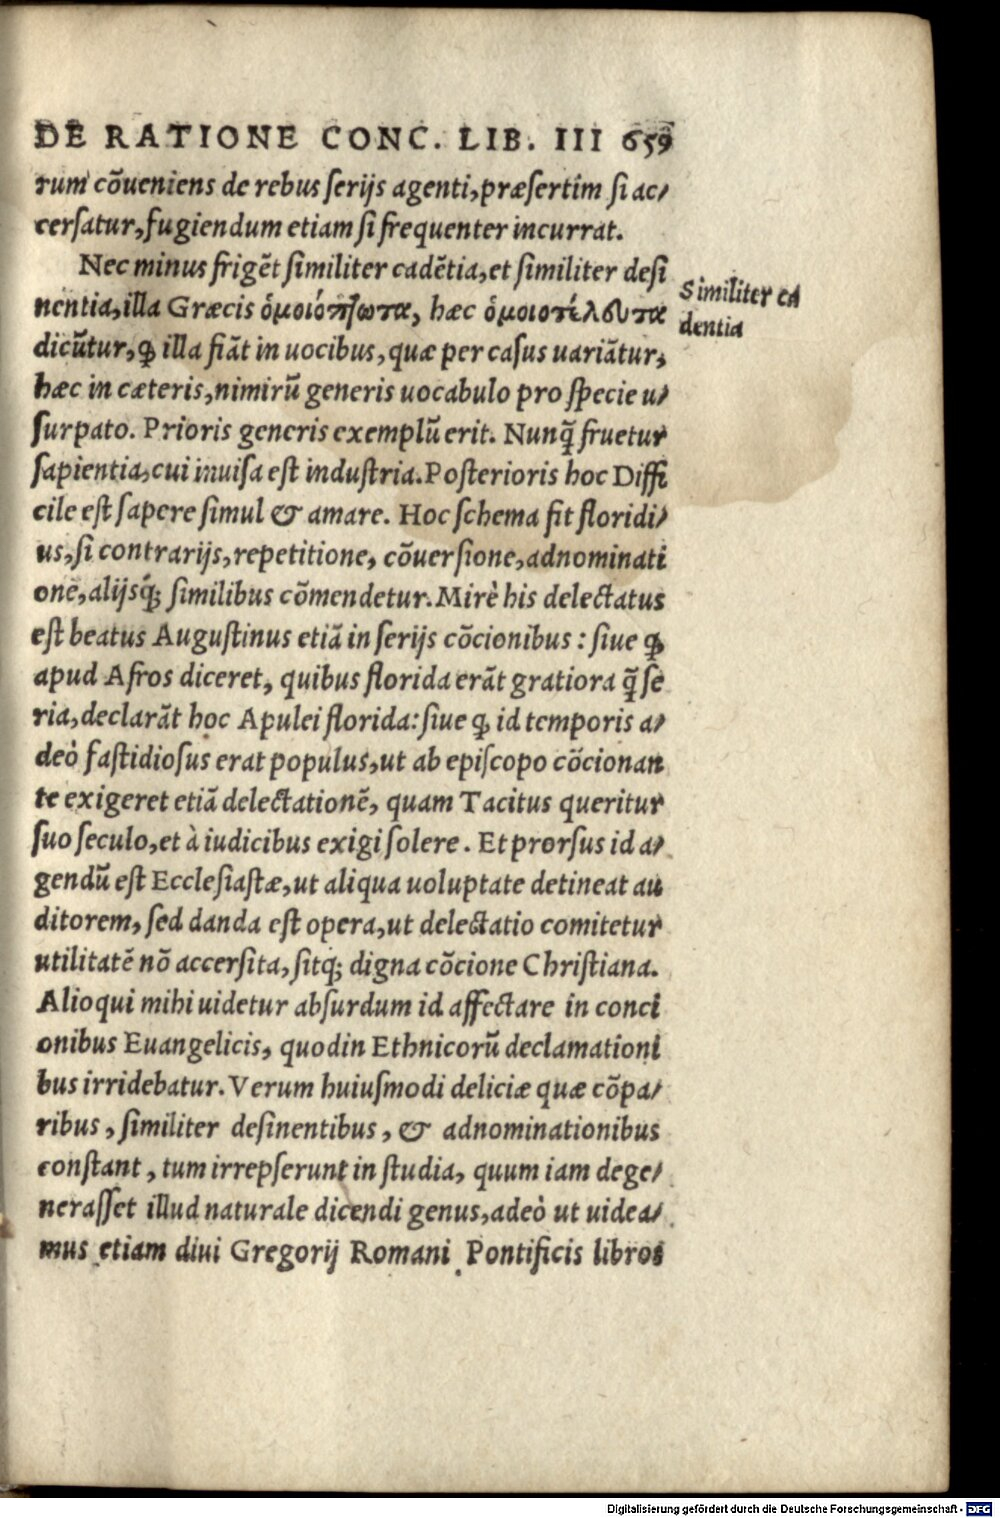 DE RATIONE CONC. LIB. III 659
rum cõueniens de rebus serijs agenti, præsertim si ac/
cersatur, fugiendum etiam si frequenter incurrat.
Nec minus frigẽt similiter cadẽtia, et similiter desi
nentia, illa Græcis ὁμοιόπτωτα, hæc ὁμοιοτέλευτα
Similiter ca
dentia
dicũtur, ꝙ illa fiãt in uocibus, quæ per casus uariãtur,
hæc in cæteris, nimirũ generis uocabulo pro specie u/
surpato. Prioris generis exemplũ erit. Nunq̃ fruetur
sapientia, cui inuisa est industria. Posterioris hoc Diffi
cile est sapere simul & amare. Hoc schema fit floridi/
us, si contrarijs, repetitione, cõuersione, adnominati
onẽ, alijsq́; similibus cõmendetur. Mirè his delectatus
est beatus Augustinus etiã in serijs cõcionibus : siue ꝙ
apud Afros diceret, quibus florida erãt gratiora q̃ se
ria, declarãt hoc Apulei florida: siue ꝙ id temporis a/
deò fastidiosus erat populus, ut ab episcopo cõcionan
te exigeret etiã delectationẽ, quam Tacitus queritur
suo seculo, et à iudicibus exigi solere. Et prorsus id a/
gendũ est Ecclesiastæ, ut aliqua uoluptate detineat au
ditorem, sed danda est opera, ut delectatio comitetur
utilitatẽ nõ accersita, sitq; digna cõcione Christiana.
Alioqui mihi uidetur absurdum id affectare in conci
onibus Euangelicis, quod in Ethnicorũ declamationi
bus irridebatur. Verum huiusmodi deliciæ quæ cõpa/
ribus, similiter desinentibus, & adnominationibus
constant, tum irrepserunt in studia, quum iam dege/
nerasset illud naturale dicendi genus, adeò ut uidea/
mus etiam diui Gregorij Romani Pontificis libros
Digitalisierung gefördert durch die Deutsche Forschungsgemeinschaft - DFG